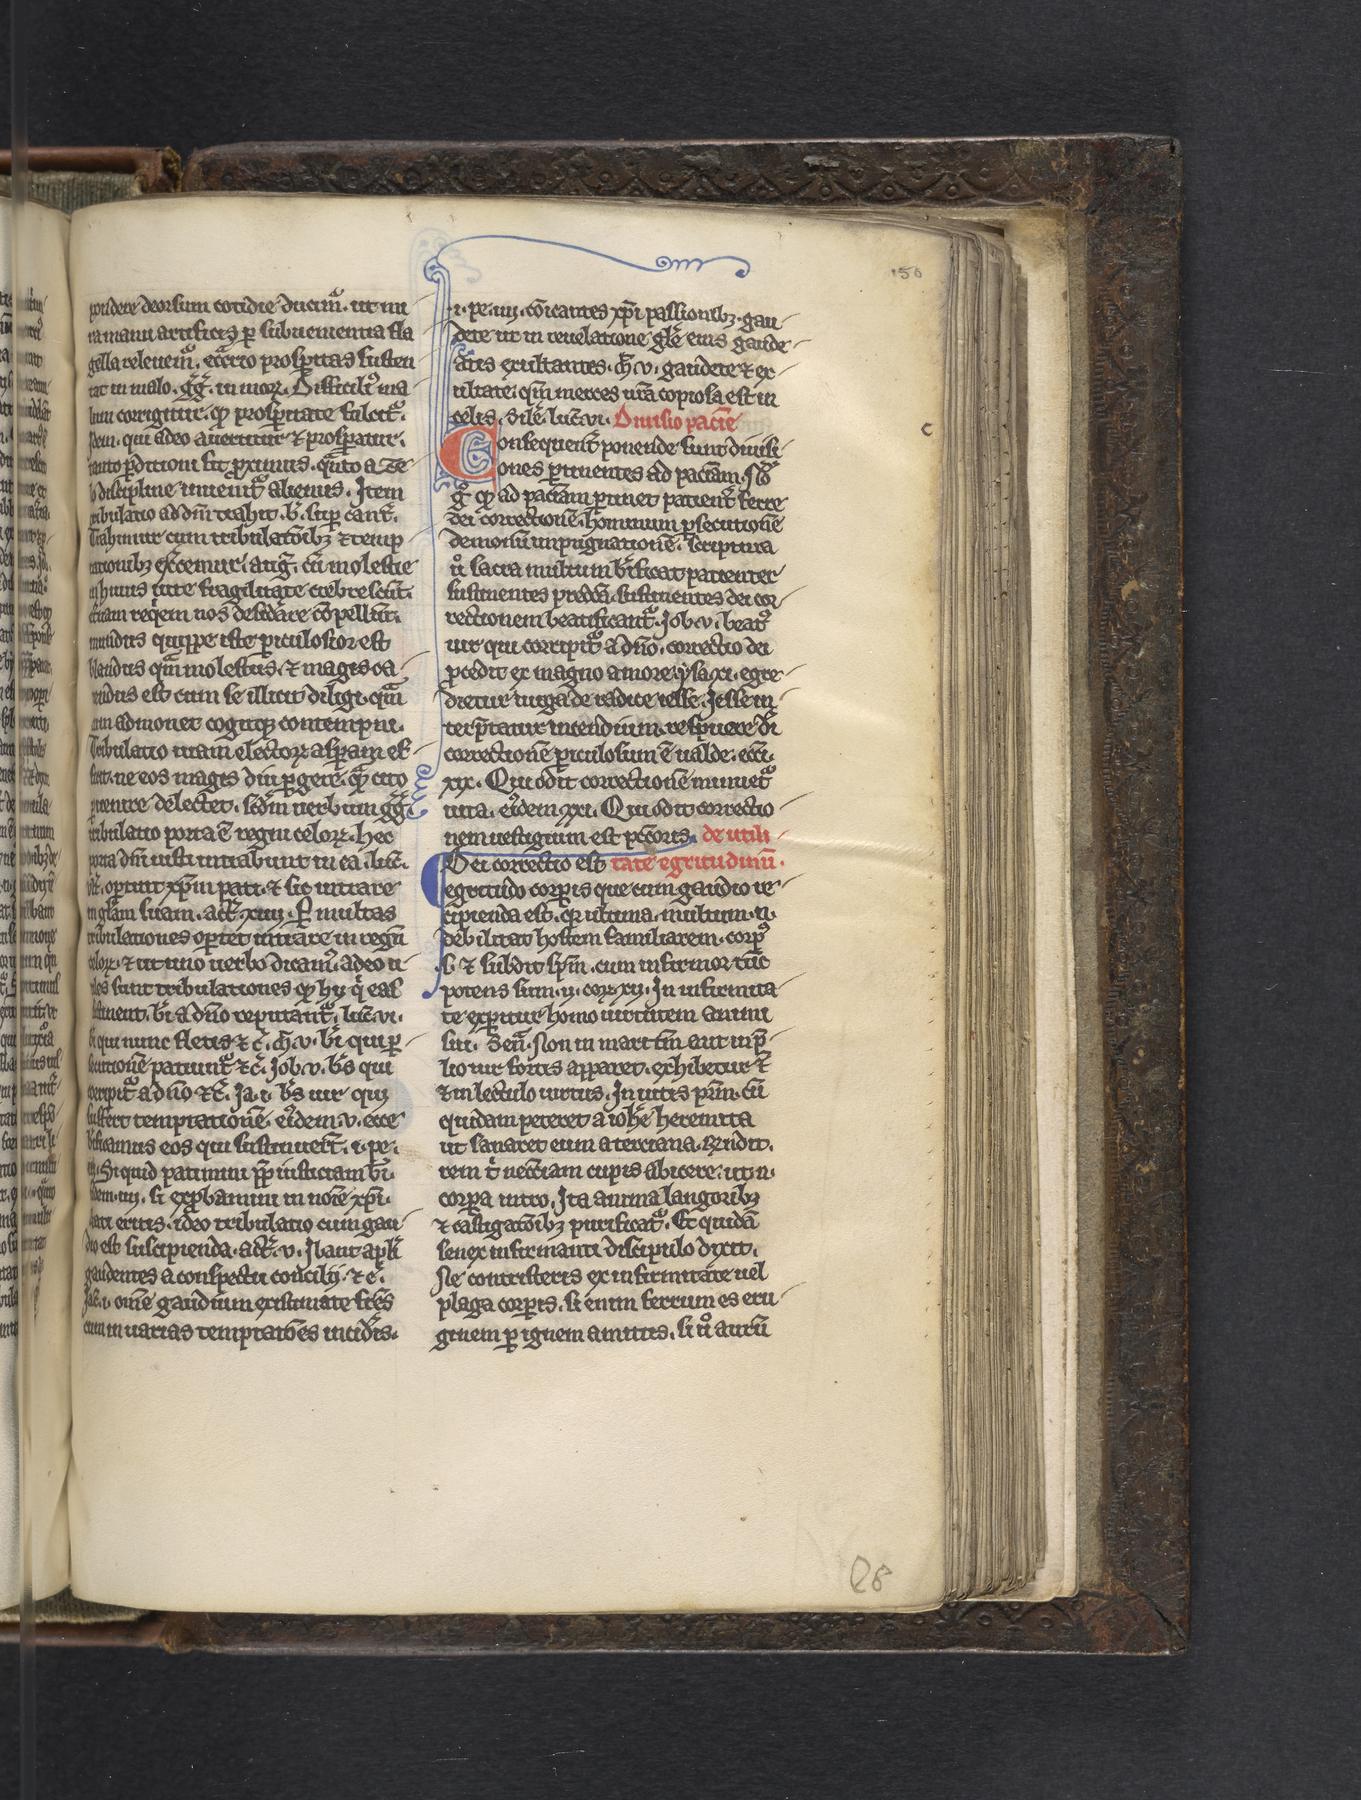 pondere deorsum cotidie ducim᷒. ut in
ra manu artificis ꝑ subuenientia fla
gella releuem᷒. ecc̄rio prosꝑitas susten
tat in malo. gg̃. in moꝝ. Difficili᷒ ma
lum corrigitur. qꝫ prosꝑitate fulcit᷒.
Idem. qui adeo auertitur ⁊ prosꝑatur.
tanto ꝑditioni fit ꝓximus. q̃nto a ze
lo discipline inuenit᷒ alienus. Item
tribulatio ad dn̄m trahit. b. suꝑ cant̃.
Trahimur cum tribulatōibꝫ ⁊ temp
tationibꝫ ex̃cemur. aug̃. cū molestie
in huius uite fragilitate crebrescūt.
et̃nam reqͥem nos desid̃are cōpellūt.
mundus quippe iste ꝑiculosior est
blandus q̃m molestus. ⁊ magis ca
uendus est cum se illicit diligi. q̃m
cum admonet cogitqꝫ contempni.
Tribulatio uiam electoꝝ asꝑam ef
ficit. ne eos magis diu ꝑgere. q̃m cito
ꝑuenire delectet. scd̄m uerbum gg̃.
tribulatio porta ē regni celoꝝ. hec
porta dn̄i iusti intrabunt in ea. luc̄.
ult̃. oportuit xp̄m pati. ⁊ sic intrare
in gl̄am suam. act̃. xiiij. Per multas
tribulationes oportet intrare in regnū
celoꝝ. ⁊ ut uno uerbo dicam᷒. adeo u
tiles sunt tribulationes qꝫ hij qͥ eas
sustinent. bt̄i a dn̄o reputant᷒. luc̄. vi.
bt̄i qui nunc fletis ⁊ c̃. Mͭ. v. bt̄i qui ꝑ
secutionē patiunt᷒ ⁊c̃. Job. v. bt̄s qui
corripit᷒ a dn̄o ⁊c̃. Ja. i. bt̄s uir qui
suffert temptationē. eiꝰdem. v. ecce
bt̄ificamus eos qui sustinuer̃t. i. pe.
iij. Si quid patimini ꝓpt̃ iusticiam bt̄i.
Idem. iiij. si exꝓbamini in noīe xp̄i.
beati eritis. ideo tribulatio cum gau
dio est suscipienda. act̃. v. Ibant apl̄i
gaudentes a conspectu concilij. ⁊ c̃.
Jac̄. i. omē gaudium existimate fr̄es
cum in uarias temptatōes incid̃itis.
i. pe. iiij. cōicantes xp̄i passionibꝫ. gau
dete ut in reuelatione gl̄e eius gaude
atis exultantes. Mͭ. v. gaudete ⁊ ex
ultate. qm̄ merces ur̄a copiosa est in
celis. Sil̄r. luc̄. vi. Diuisio pacīe
Consequent̃ ponende sunt diuisi
ones ꝑtinentes ad paciam. No
g̊ qꝫ ad paciam ꝑtinet patient̃ ferre
dei correctionē. hominum ꝑsecutionē
demonū inpugnationē. Scriptura
u᷒ sacra multum bt̄ificat patienter
sustinentes predc̄a. sustinentes dei cor
rectionem beatificant᷒. Job. v. beat᷒
uir qui corripit᷒ a dn̄o. correctio dei
ꝓcedit ex magno amore. ysa. xi. egre
dietur uirga de radice iesse. Jesse in
terp̃tatur incendium. respuere d̾i
correctionē ꝑiculosum ē ualde. ecc̄i.
xix. Qui odit correctionē minuet᷒
uita. eiꝰdem xxi. Qui odit correctio
nem uestigium est pc̄coris. de utili
Dei correctio est tate egritudinū.
egritudo corꝑis que cum gaudio re
cipienda est. qꝛ ualitina. multum. n.
debilitat hostem familiarem. corp᷒
s. ⁊ subdit sp̄m. cum infirmor tūc
potens sum. ij. coꝝ. xij. In infirmita
te experitur homo uirtutem animi
sui. Sen̄. Non in mari tm̄ aut in p̃
lio uir fortis apparet. exhibetur ⁊
⁊ in lectulo uirtus. In uitis pr̄m. cū
quidam peteret a ioh̄e heremita
ut sanaret eum a terciana. r̄ndit.
rem t̾ nec̄ciam cupis abicere. ut. n.
corꝑa nitro. Ita anima langoribꝫ
⁊ castigatōibꝫ purificat᷒. Et quidā
senex infirmanti discipulo dixit.
Ne contristeris ex infirmitate uel
plaga corꝑis. si enim ferrum es eru
ginem ꝑ ignem amittis. si u᷒ aurū
150
c
28